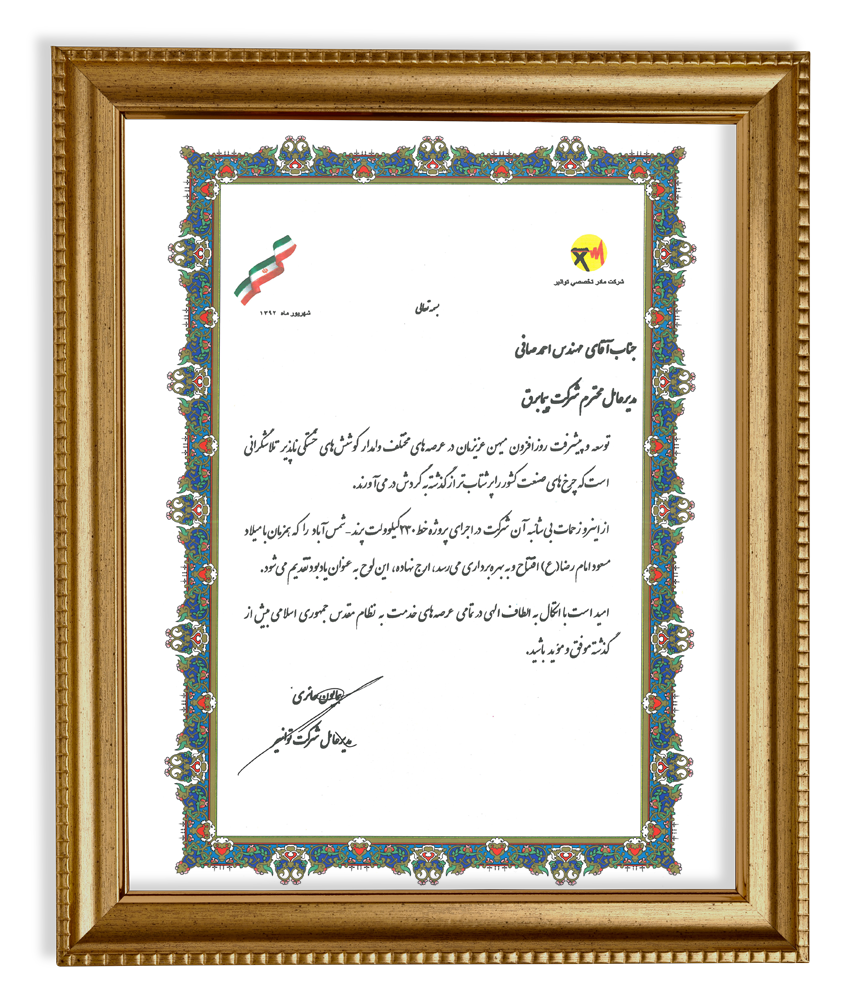 شرکت مادر تخصصی توانیر
شهریور ماه ۱۳۹۲
بسمه تعالی
جناب آقای مهندس احمد صافی
مدیرعامل محترم شرکت پیمابرق
توسعه و پیشرفت روزافزون میهن عزیزمان در عرصه های مختلف وامدار کوشش های خستگی ناپذیر تلاشگرانی
است که چرخ های صنعت کشور را پر شتاب تر از گذشته به گردش در می آورند.
از اینرو زحمات بی شائبه آن شرکت در اجرای پروژه خط ۲۳۰ کیلوولت پرند - شمس آباد را که همزمان با میلاد
مسعود امام رضا (ع) افتتاح و به بهره برداری می رسد، ارج نهاده، این لوح به عنوان یادبود تقدیم می شود.
امید است با اتکال به الطاف الهی در تمامی عرصه های خدمت به نظام مقدس جمهوری اسلامی بیش از
گذشته موفق و موید باشید.
همایون حائری
مدیرعامل شرکت توانیر